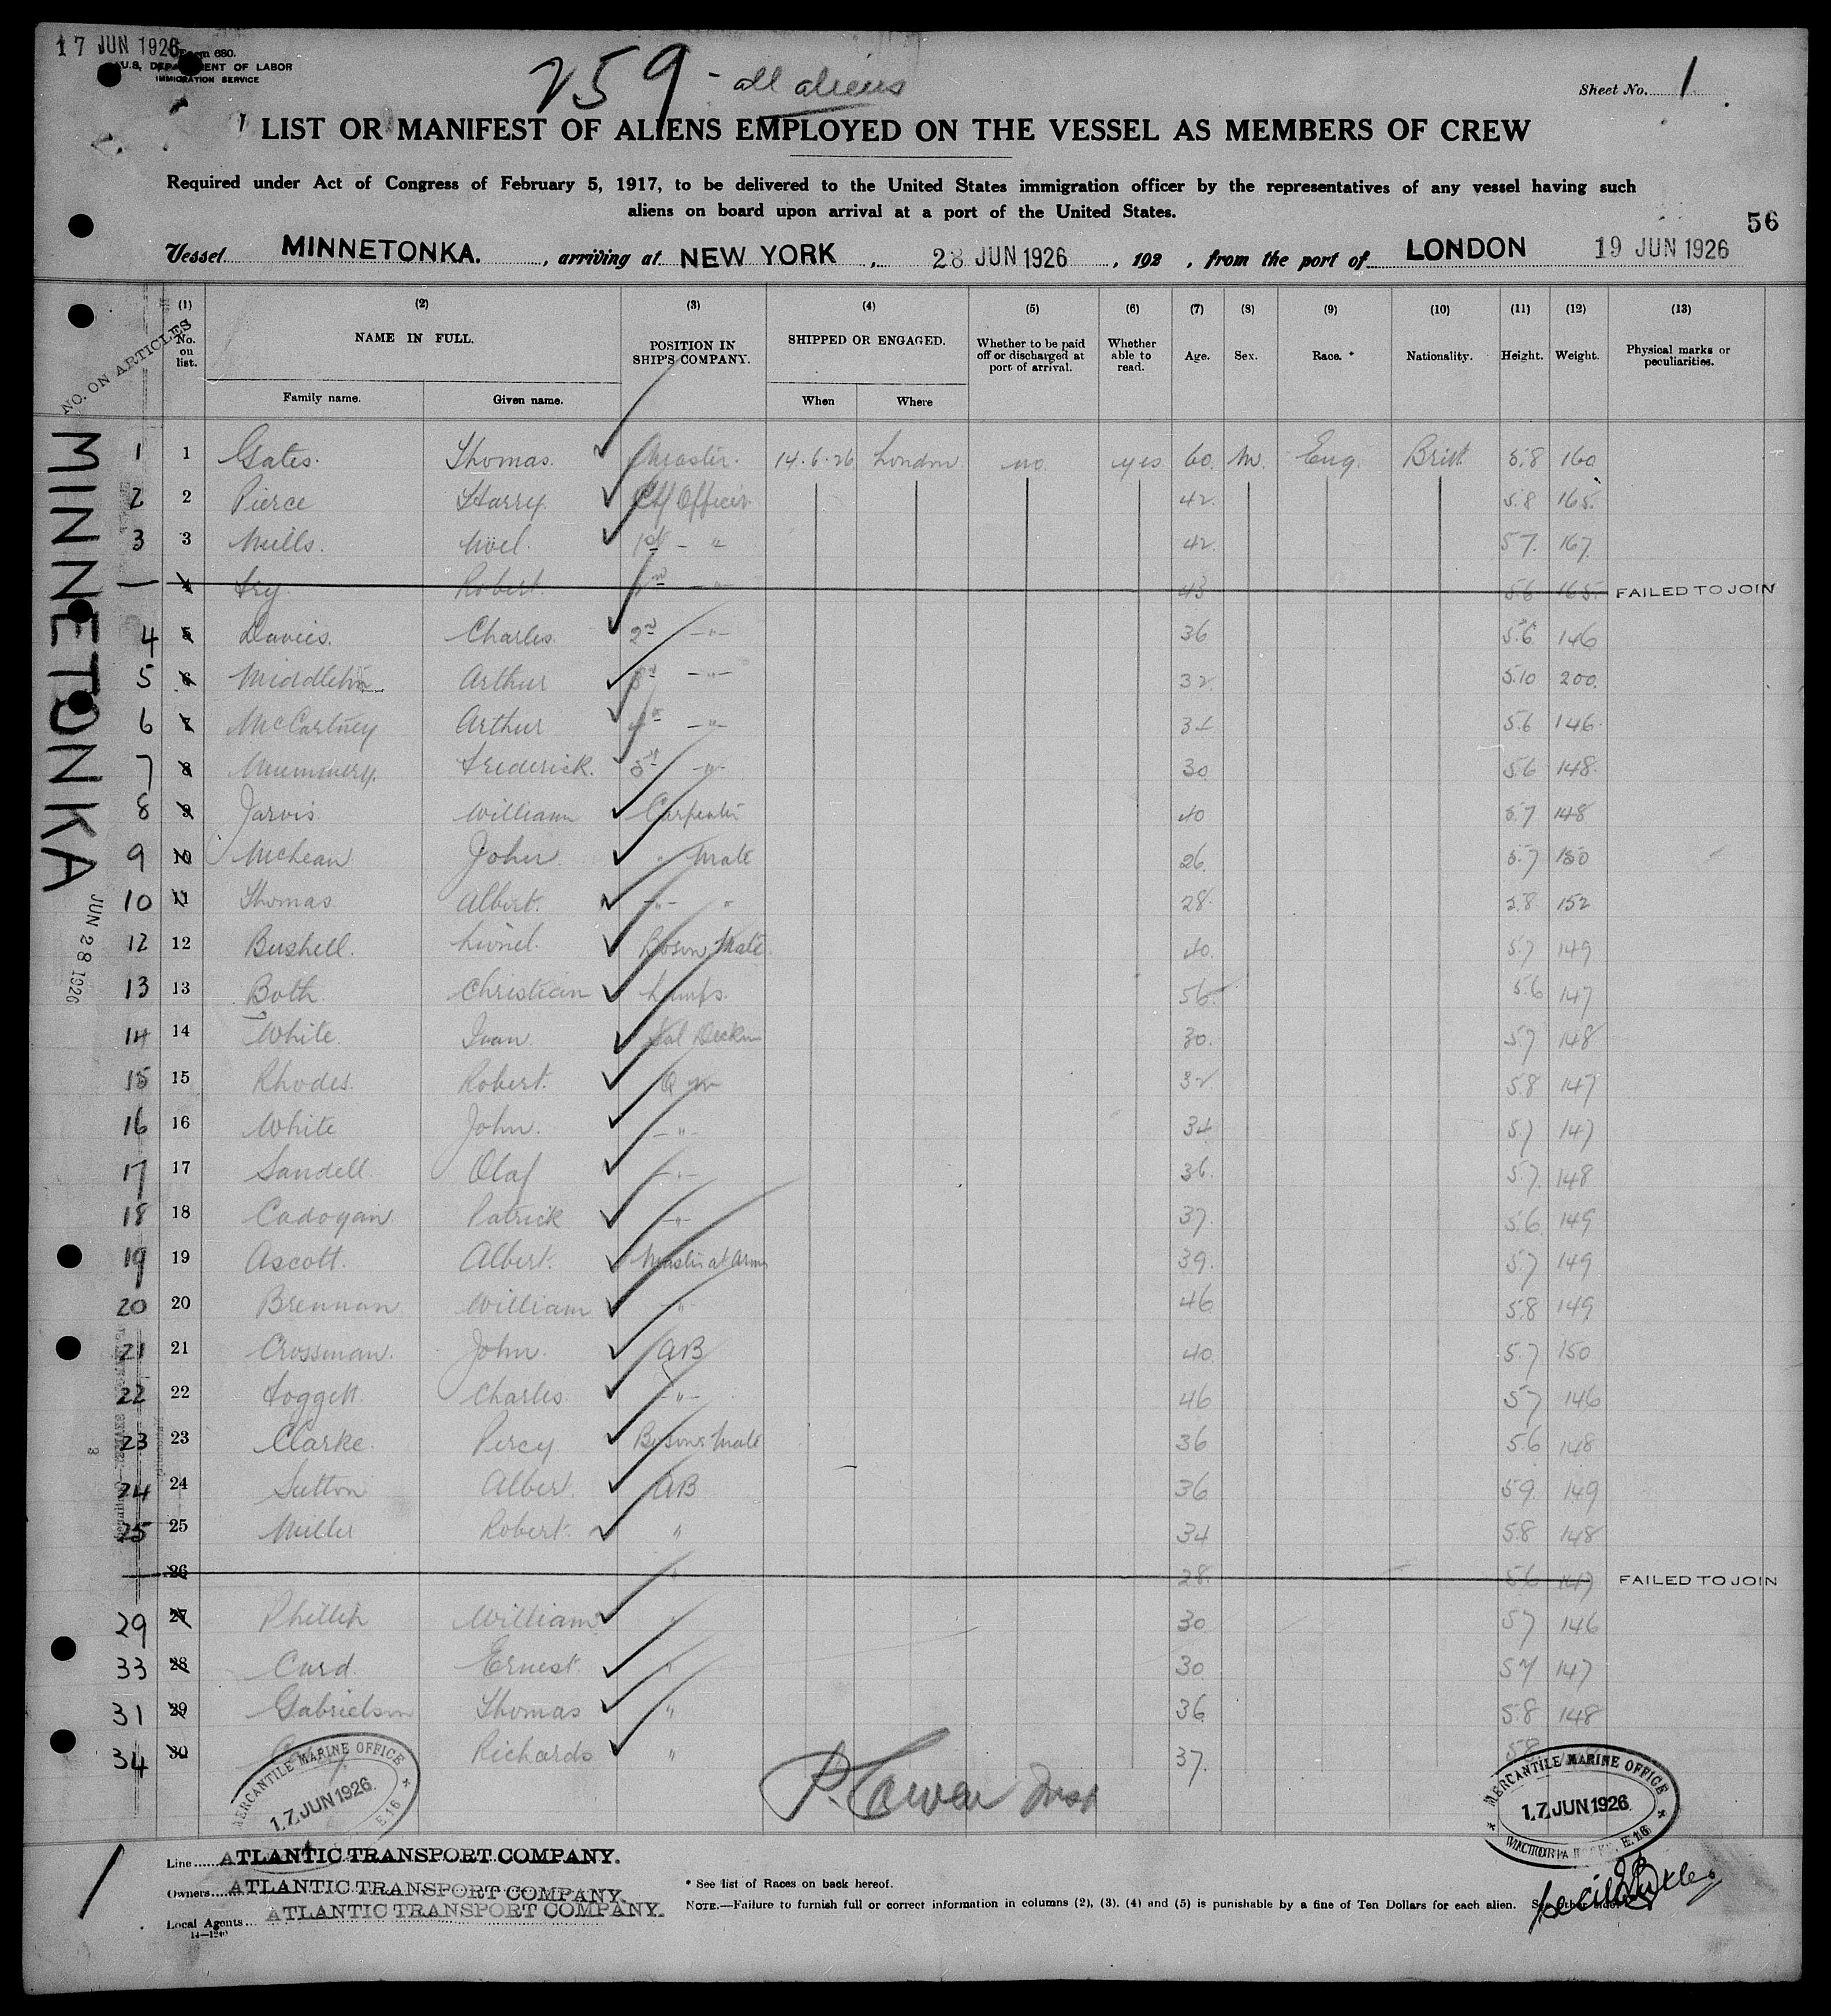 17 JUN 1926
Form 680.
U.S. DEPARTMENT OF LABOR
IMMIGRATION SERVICE
259 - all aliens
Sheet No. 1
LIST OR MANIFEST OF ALIENS EMPLOYED ON THE VESSEL AS MEMBERS OF CREW
Required under Act of Congress of February 5, 1917, to be delivered to the United States immigration officer by the representatives of any vessel having such
aliens on board upon arrival at a port of the United States.
56
Vessel MINNETONKA. , arriving at NEW YORK , 28 JUN 1926 , 192 , from the port of LONDON 19 JUN 1926
NO. ON ARTICLES
(1) (2) (3) (4) (5) (6) (7) (8) (9) (10) (11) (12) (13)
No. on list. NAME IN FULL. POSITION IN SHIP'S COMPANY. SHIPPED OR ENGAGED. Whether to be paid off or discharged at port of arrival. Whether able to read. Age. Sex. Race. * Nationality. Height. Weight. Physical marks or peculiarities.
Family name. Given name. When Where
MINNETONKA
JUN 28 1926
1 1 Gates. Thomas. Master. 14.6.26 London no. yes 60. M. Eng. Brit. 5.8 160
2 2 Pierce Harry. Ch Officer. 42. 5.8 165.
3 3 Mills. Noel. 1st - " 42. 5.7. 167.
— 4 Fry Robert 2nd -"- 43 5.6 165. FAILED TO JOIN
4 5 Davies. Charles. 2nd -"- 36 5.6 146
5 6 Middleton Arthur 3rd -"- 32. 5.10 200.
6 7 McCartney Arthur 4th -"- 31 5.6 146.
7 8 Mummery. Frederick. 5th -"- 30. 5.6 148.
8 9 Jarvis. William Carpenter 40 5.7 148
9 10 McLean John. " Mate 26. 5.7 150
10 11 Thomas Albert. -"- " 28. 5.8. 152
12 12 Bushell. Lionel. Boson Mate 40. 5.7 149
13 13 Both. Christian Lamps. 56. 5.6 147
14 14 White. Ivan. 30. 5.7 148
15 15 Rhodes. Robert. Q M 32 5.8 147
16 16 White John. -"- 34 5.7 147
17 17 Sandell. Olaf -"- 36. 5.7. 148
18 18 Cadogan. Patrick -"- 37. 5.6. 149
19 19 Ascott. Albert. Master at Arms 39. 5.7 149
20 20 Brennan William -"- 46 5.8 149.
21 21 Crossman. John. AB 40. 5.7 150
22 22 Foggett. Charles. -"- 46 5.7 146
23 23 Clarke. Percy. Bosons Mate 36 5.6 148
24 24 Sutton Albert. AB 36 5.9. 149
25 25 Miller Robert. " 34 5.8 148
26 " 28. 5.6 147 FAILED TO JOIN
29 27 Phillip William " 30 5.7 146
33 28 Card. Ernest. " 30 5.7 147
31 29 Gabrielson Thomas " 36. 5.8 148
34 30 Richards " 37. 5.8
MERCANTILE MARINE OFFICE
17 JUN 1926
E.16
MERCANTILE MARINE OFFICE
17 JUN 1926
VICTORIA DOCKS, E.16
Line ATLANTIC TRANSPORT COMPANY.
Owners ATLANTIC TRANSPORT COMPANY.
Local Agents ATLANTIC TRANSPORT COMPANY.
14—1240
* See list of Races on back hereof.
NOTE.—Failure to furnish full or correct information in columns (2), (3), (4) and (5) is punishable by a fine of Ten Dollars for each alien. See other side.